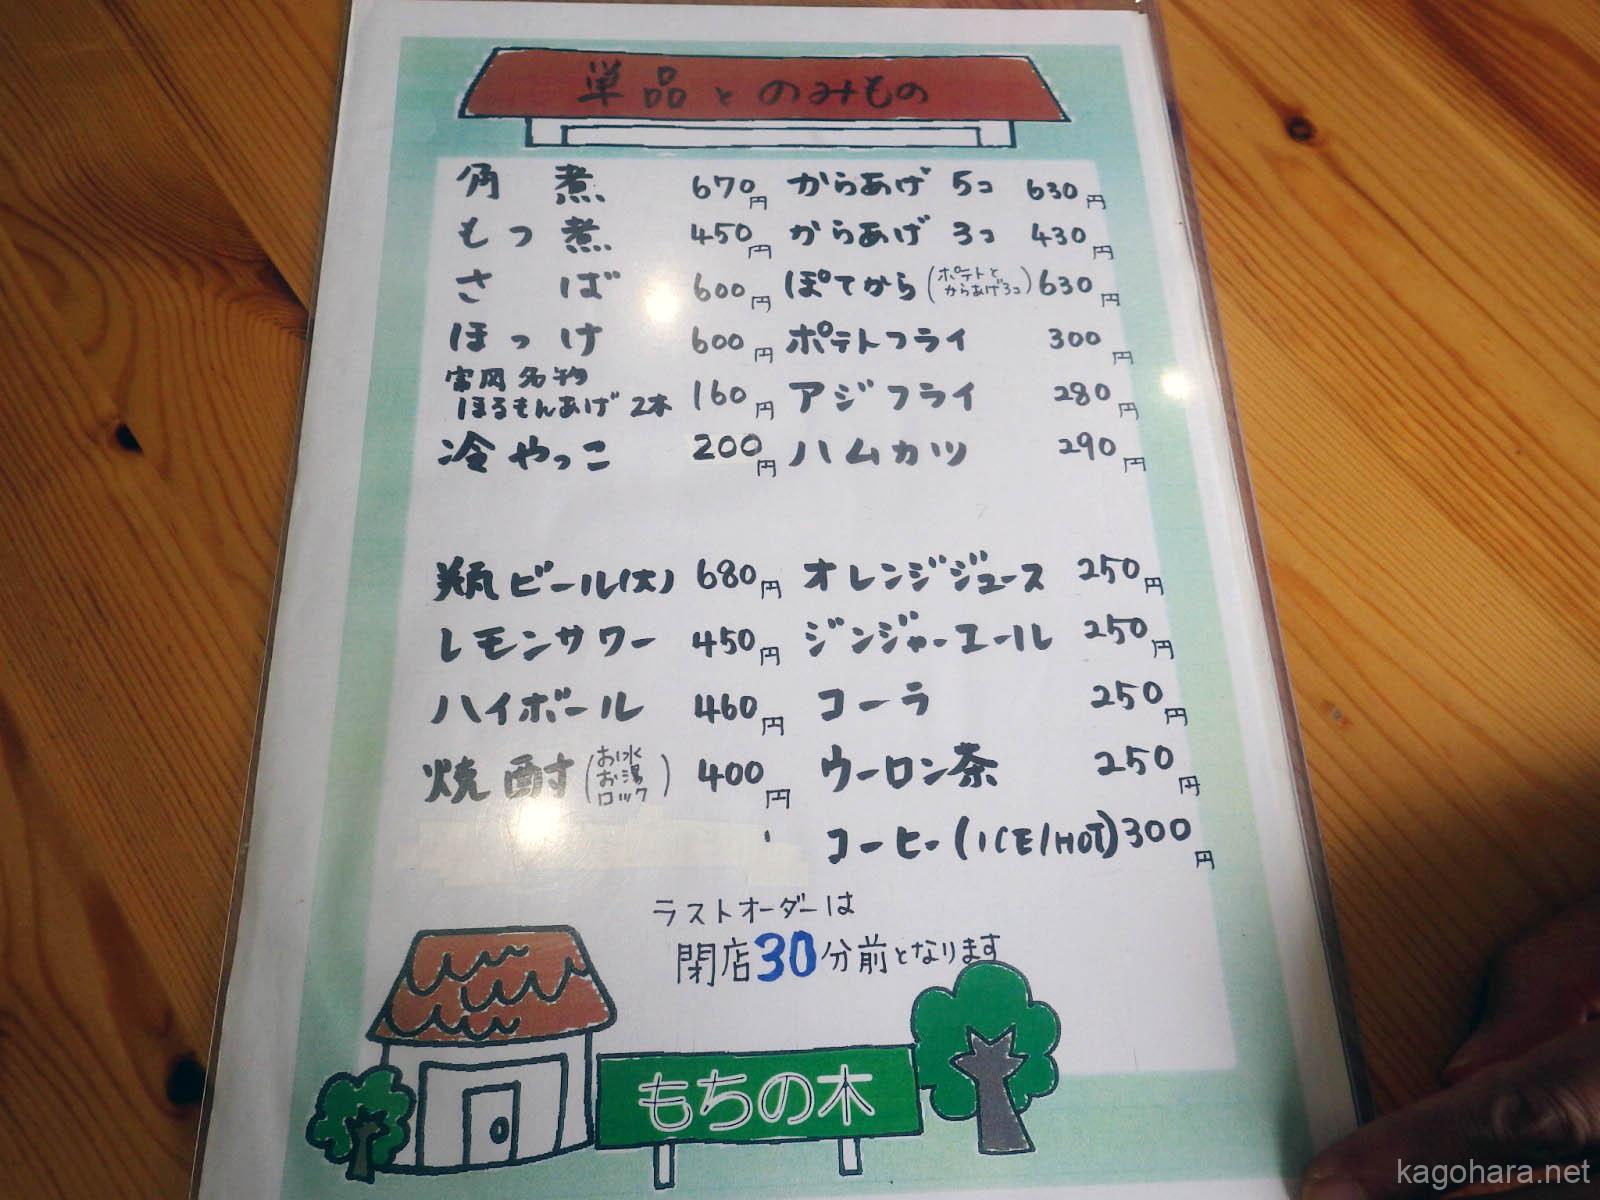 単品とのみもの
角煮 670円
もつ煮 450円
さば 600円
ほっけ 600円
富岡名物
ほるもんあげ 2本 160円
冷やっこ 200円
からあげ 5コ 630円
からあげ 3コ 430円
ぽてから (ポテトとからあげ3コ) 630円
ポテトフライ 300円
アジフライ 280円
ハムカツ 290円
瓶ビール(大) 680円
レモンサワー 450円
ハイボール 460円
焼酎 (お水 お湯 ロック) 400円
オレンジジュース 250円
ジンジャーエール 250円
コーラ 250円
ウーロン茶 250円
コーヒー (ICE/HOT) 300円
ラストオーダーは
閉店30分前となります
もちの木
kagohara.net